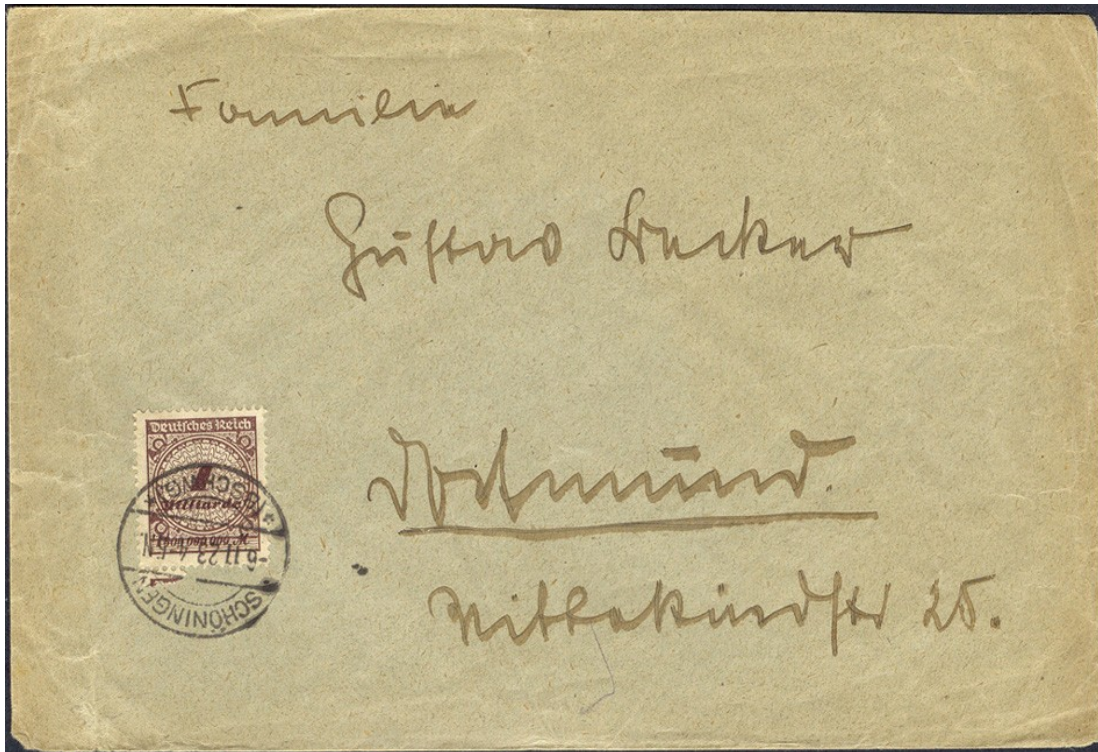 Familie
Gustav Becker
Dortmund.
Wittekindstr 25.
Deutsches Reich
1
Milliarde
SCHÖNINGEN
-6.11.23.4-5 N.